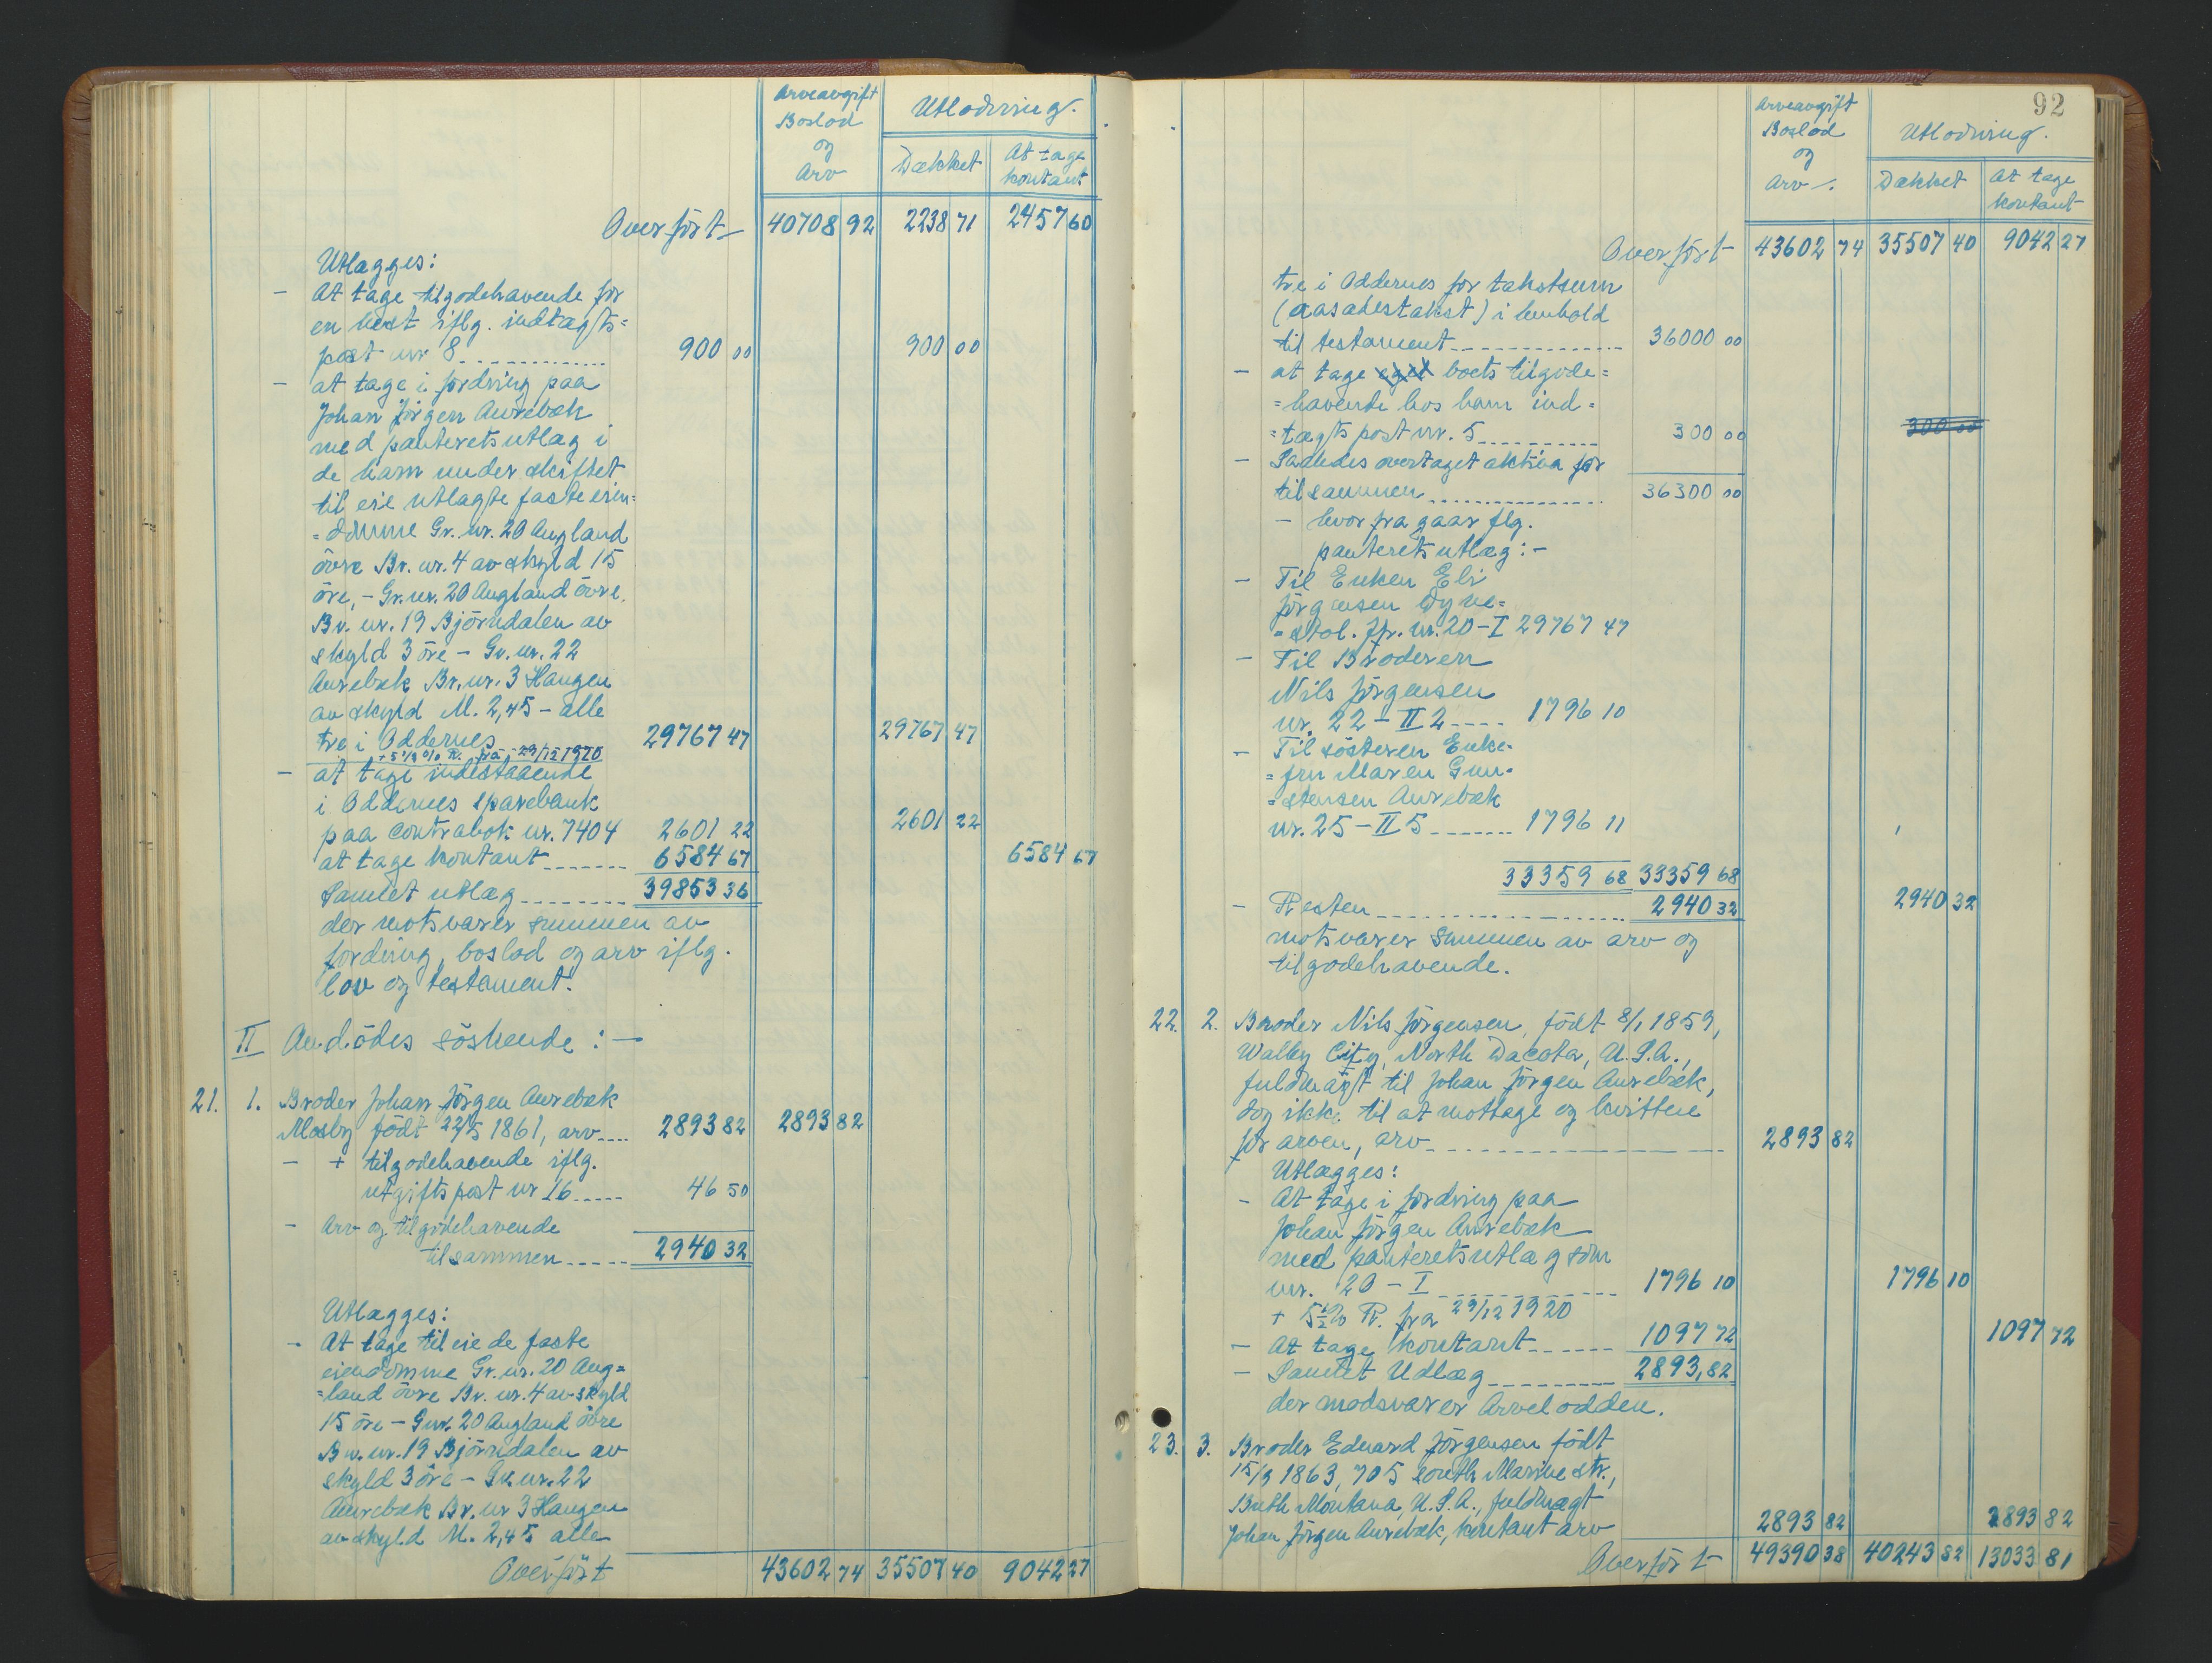 Arveavgift
Boslod
og
Arv
Utlodning.
Dækket
At tage
kontant
Overført 40708 92 2238 71 2457 60
Utlægges:
- At tage tilgodehavende for
en hest iflg. indtægts=
post nr 8 900 00 900 00
- at tage i fordring paa
Johan Jörgen Aurebæk
med panteretsutlæg i
de ham under skiftet
til eie utlagte faste eien=
=domme Gr. nr. 20 Augland
övre Br. nr. 4 av skyld 15
öre, - Gr. nr. 20 Augland övre.
Br. nr. 19 Björndalen av
skyld 3 öre - Gr. nr. 22
Aurebæk Br. nr. 3 Haugen
av skyld M. 2,45 - alle
tre i Oddernes 29767 47 29767 47
+ 5 1/2 % R. fra 29/12 1920
- at tage indestaaende
i Oddernes Sparebank
paa Contrabok nr. 7404 2601 22 2601 22
at tage kontant 6584 67 6584 67
Samlet utlæg 39853 36
der motsvarer summen av
fordring, boslod og arv iflg.
lov og testament.
II Avdödes söskende: -
21. 1. Broder Johan Jörgen Aurebæk
Mosby född 22/5 1861, arv 2893 82 2893 82
- + tilgodehavende iflg.
utgiftspost nr 16 46 50
- Arv og tilgodehavende
tilsammen 2940 32
Utlægges:
- At tage til eie de faste
eiendomme Gr. nr. 20 Aug=
=land övre Br. nr. 4 av skyld
15 öre - Gnr. 20 Augland övre
Br. nr. 19 Björndalen av
skyld 3 öre - Gr. nr. 22
Aurebæk Br. nr 3 Haugen
av skyld M. 2,45 alle
Overført 43602 74 35507 40 9042 27
92
Arveavgift
Boslod
og
Arv
Utlodning.
Dækket
At tage
kontant
Overført 43602 74 35507 40 9042 27
tre i Oddernes for takstsum
(aasætestakst) i henhold
til testament 36000 00
- at tage boets tilgode=
=havende hos ham ind=
=tægtspost nr. 5 300 00 300 00
- Saaledes overtaget aktiva for
tilsammen 36300 00
- hvorfra gaar flg.
panteretsutlæg: -
- Til Enken Eli
Jörgensen Dyne=
=stol. Jfr. nr. 20 - I 29767 47
- Til Broderen
Nils Jörgensen
nr. 22 - II 2 1796 10
- Til sösteren Enke=
=fru Maren Gun=
=stensen Aurebæk
nr. 25 - II 5 1796 11
33359 68 33359 68
- Resten 2940 32 2940 32
motsvarer summen av arv og
tilgodehavende.
22. 2. Broder Nils Jörgensen, född 8/1 1859,
Walley City, North Dacota, U.S.A.,
fuldmagt til Johan Jörgen Aurebæk,
dog ikke til at mottage og kvittere
for arven, arv 2893 82
Utlægges:
- At tage i fordring paa
Johan Jörgen Aurebæk
med panteretsutlæg som
nr. 20 - I 1796 10 1796 10
+ 5 1/2 % R. fra 29/12 1920
- At tage kontant 1097 72 1097 72
- Samlet Udlæg 2893,82
der modsvarer Arvelodden.
23. 3. Broder Edvard Jörgensen född
15/9 1863, 705 South Marine str.,
Buth Montana, U.S.A., fuldmagt
Johan Jörgen Aurebæk, kontant arv 2893 82 2893 82
Overført 49390 38 40243 82 13033 81